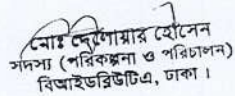 মোঃ দেলোয়ার হোসেন
সদস্য (পরিকল্পনা ও পরিচালন)
বিআইডব্লিউটিএ, ঢাকা।